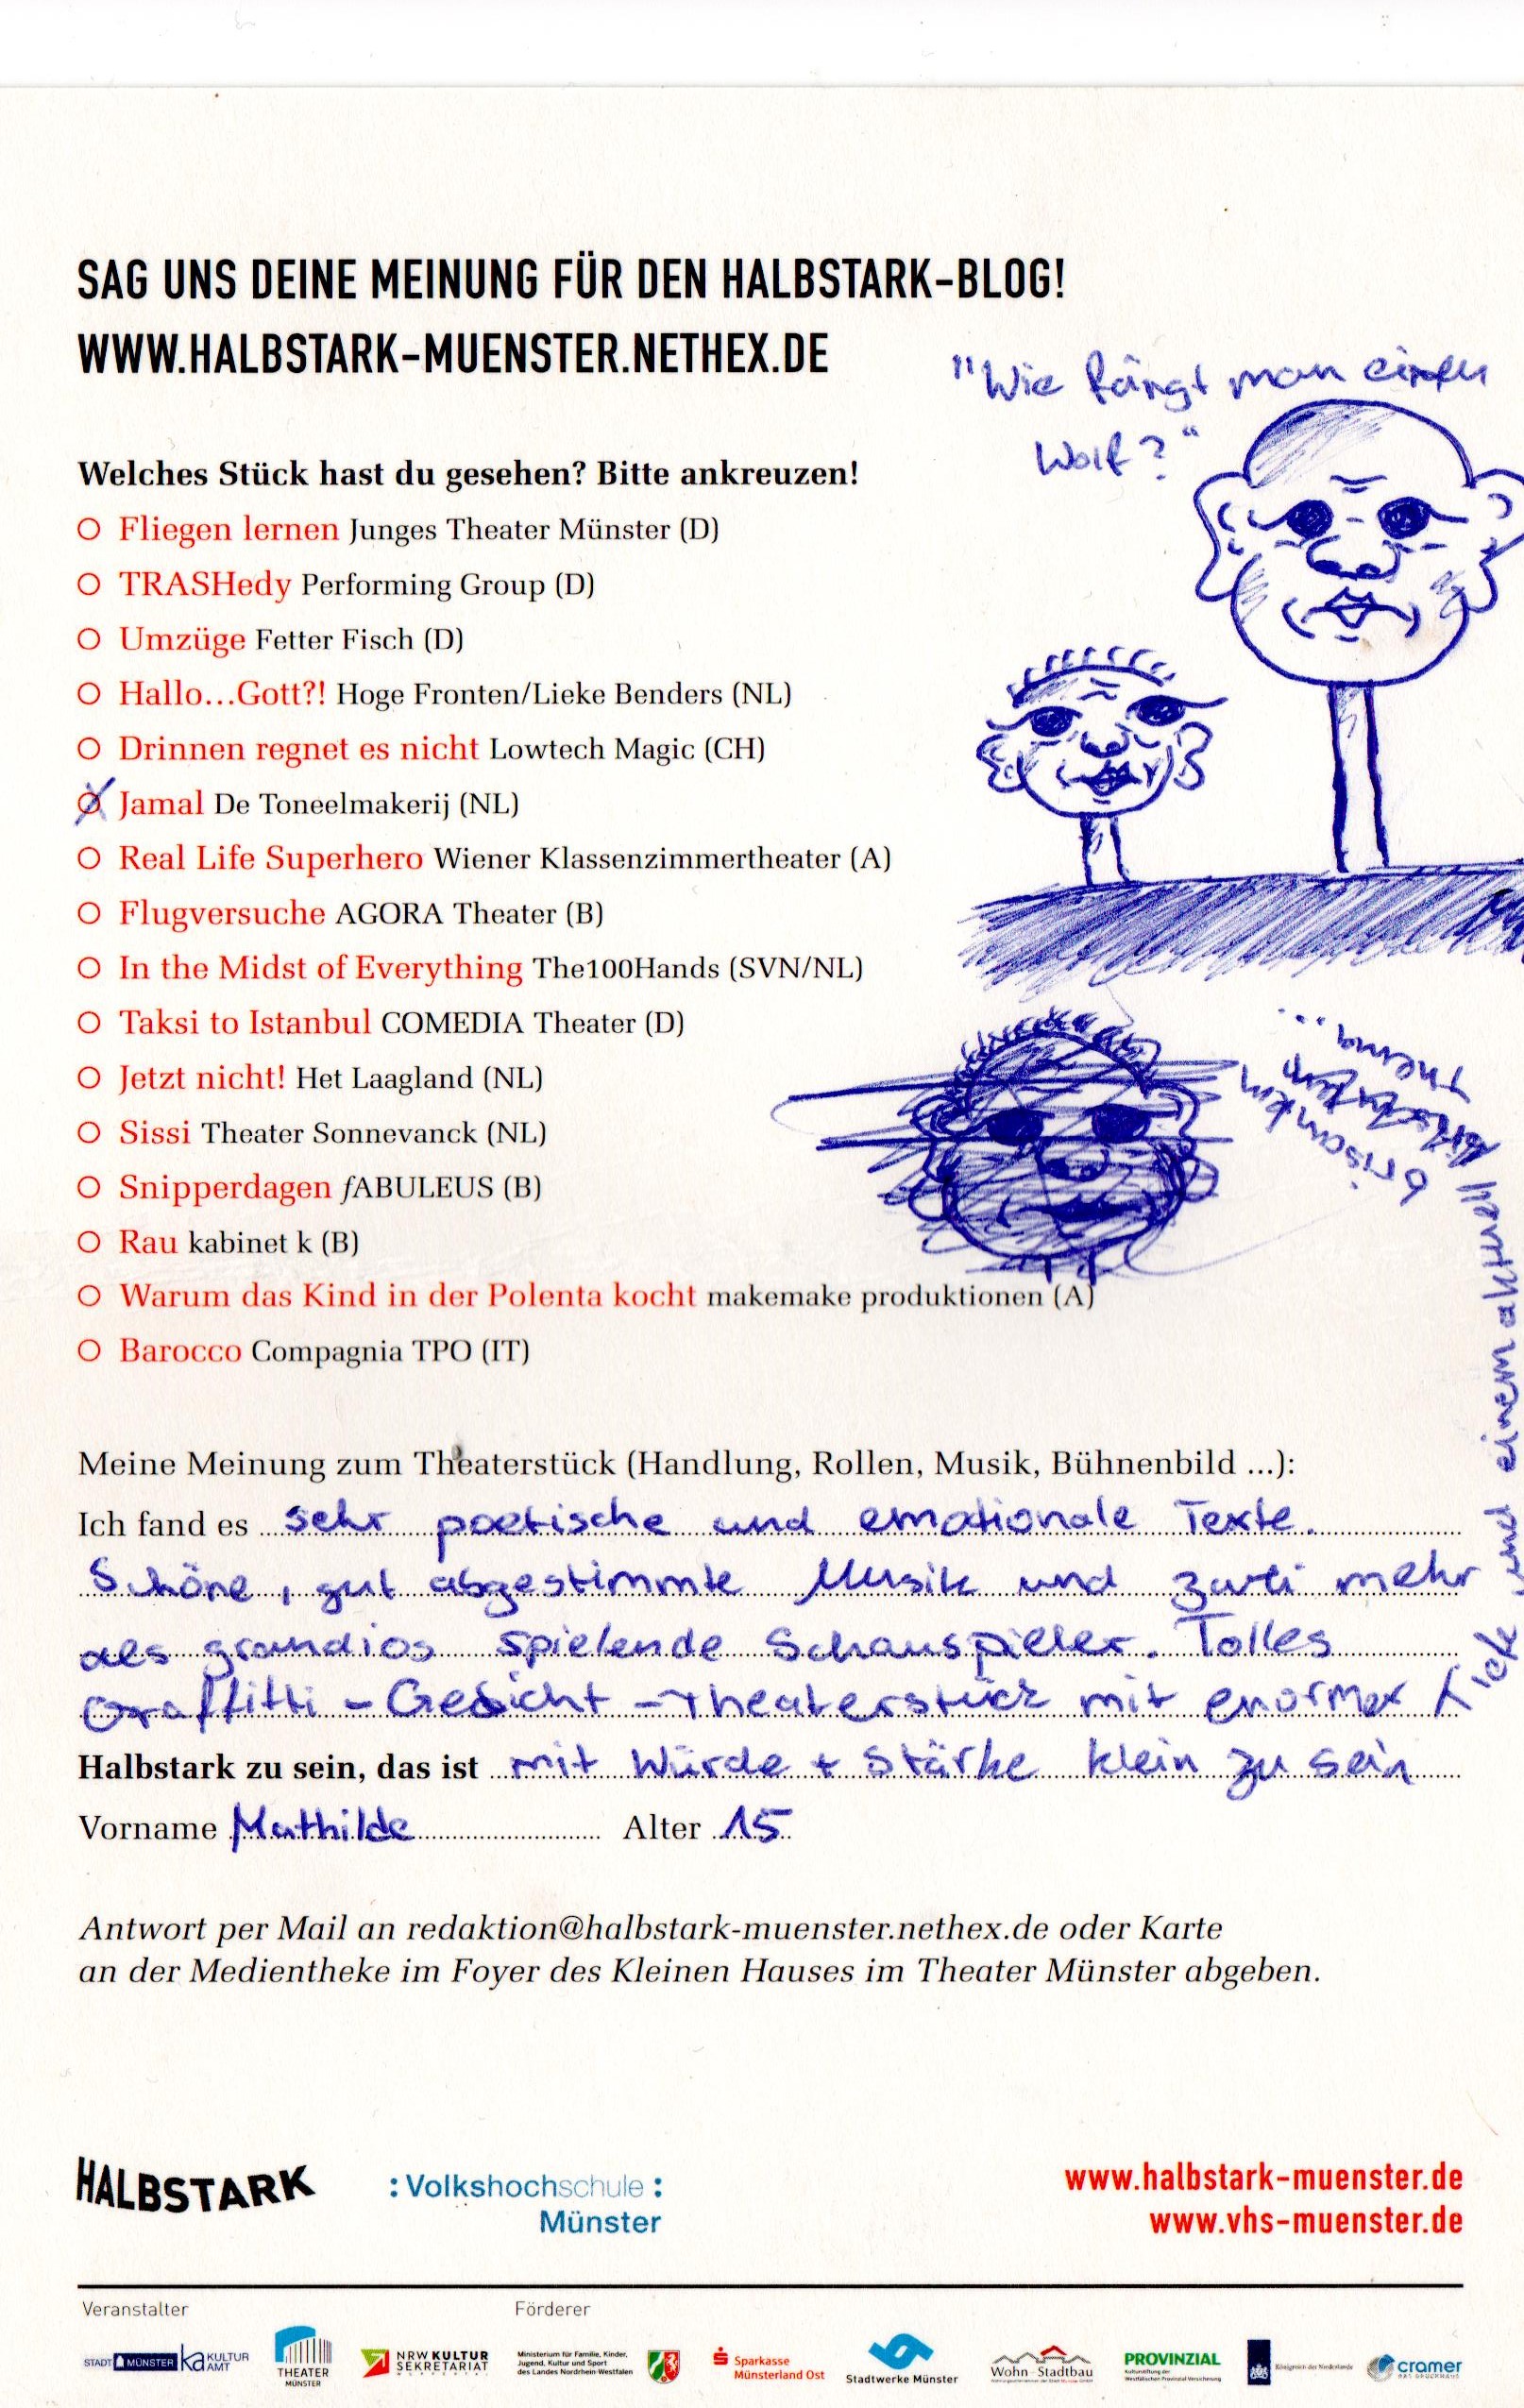 SAG UNS DEINE MEINUNG FÜR DEN HALBSTARK-BLOG!
WWW.HALBSTARK-MUENSTER.NETHEX.DE
"Wie fängt man einen
Wolf?"
Welches Stück hast du gesehen? Bitte ankreuzen!
Fliegen lernen Junges Theater Münster (D)
TRASHedy Performing Group (D)
Umzüge Fetter Fisch (D)
Hallo...Gott?! Hoge Fronten/Lieke Benders (NL)
Drinnen regnet es nicht Lowtech Magic (CH)
Jamal De Toneelmakerij (NL)
Real Life Superhero Wiener Klassenzimmertheater (A)
Flugversuche AGORA Theater (B)
In the Midst of Everything The100Hands (SVN/NL)
Taksi to Istanbul COMEDIA Theater (D)
Jetzt nicht! Het Laagland (NL)
Sissi Theater Sonnevanck (NL)
Snipperdagen fABULEUS (B)
Rau kabinet k (B)
Warum das Kind in der Polenta kocht makemake produktionen (A)
Barocco Compagnia TPO (IT)
Meine Meinung zum Theaterstück (Handlung, Rollen, Musik, Bühnenbild ...):
Ich fand es sehr poetische und emotionale Texte.
Schöne, gut abgestimmte Musik und zwei mehr
als grandios spielende Schauspieler. Tolles
Graffitti-Gesicht-Theaterstück mit enormer
Kick und einem aktuell
brisanten
Thema...
Halbstark zu sein, das ist mit Würde + Stärke klein zu sein
Vorname Mathilde Alter 15
Antwort per Mail an redaktion@halbstark-muenster.nethex.de oder Karte
an der Medientheke im Foyer des Kleinen Hauses im Theater Münster abgeben.
HALBSTARK
:Volkshochschule:
Münster
www.halbstark-muenster.de
www.vhs-muenster.de
Veranstalter
Förderer
STADT MÜNSTER ka KULTUR
AMT
THEATER
MÜNSTER
NRW KULTUR
SEKRETARIAT
Ministerium für Familie, Kinder,
Jugend, Kultur und Sport
des Landes Nordrhein-Westfalen
Sparkasse
Münsterland Ost
Stadtwerke Münster
Wohn+Stadtbau
PROVINZIAL
Kulturstiftung der
Westfälischen Provinzial Versicherung
Königreich der Niederlande
cramer
DAS DRUCKHAUS